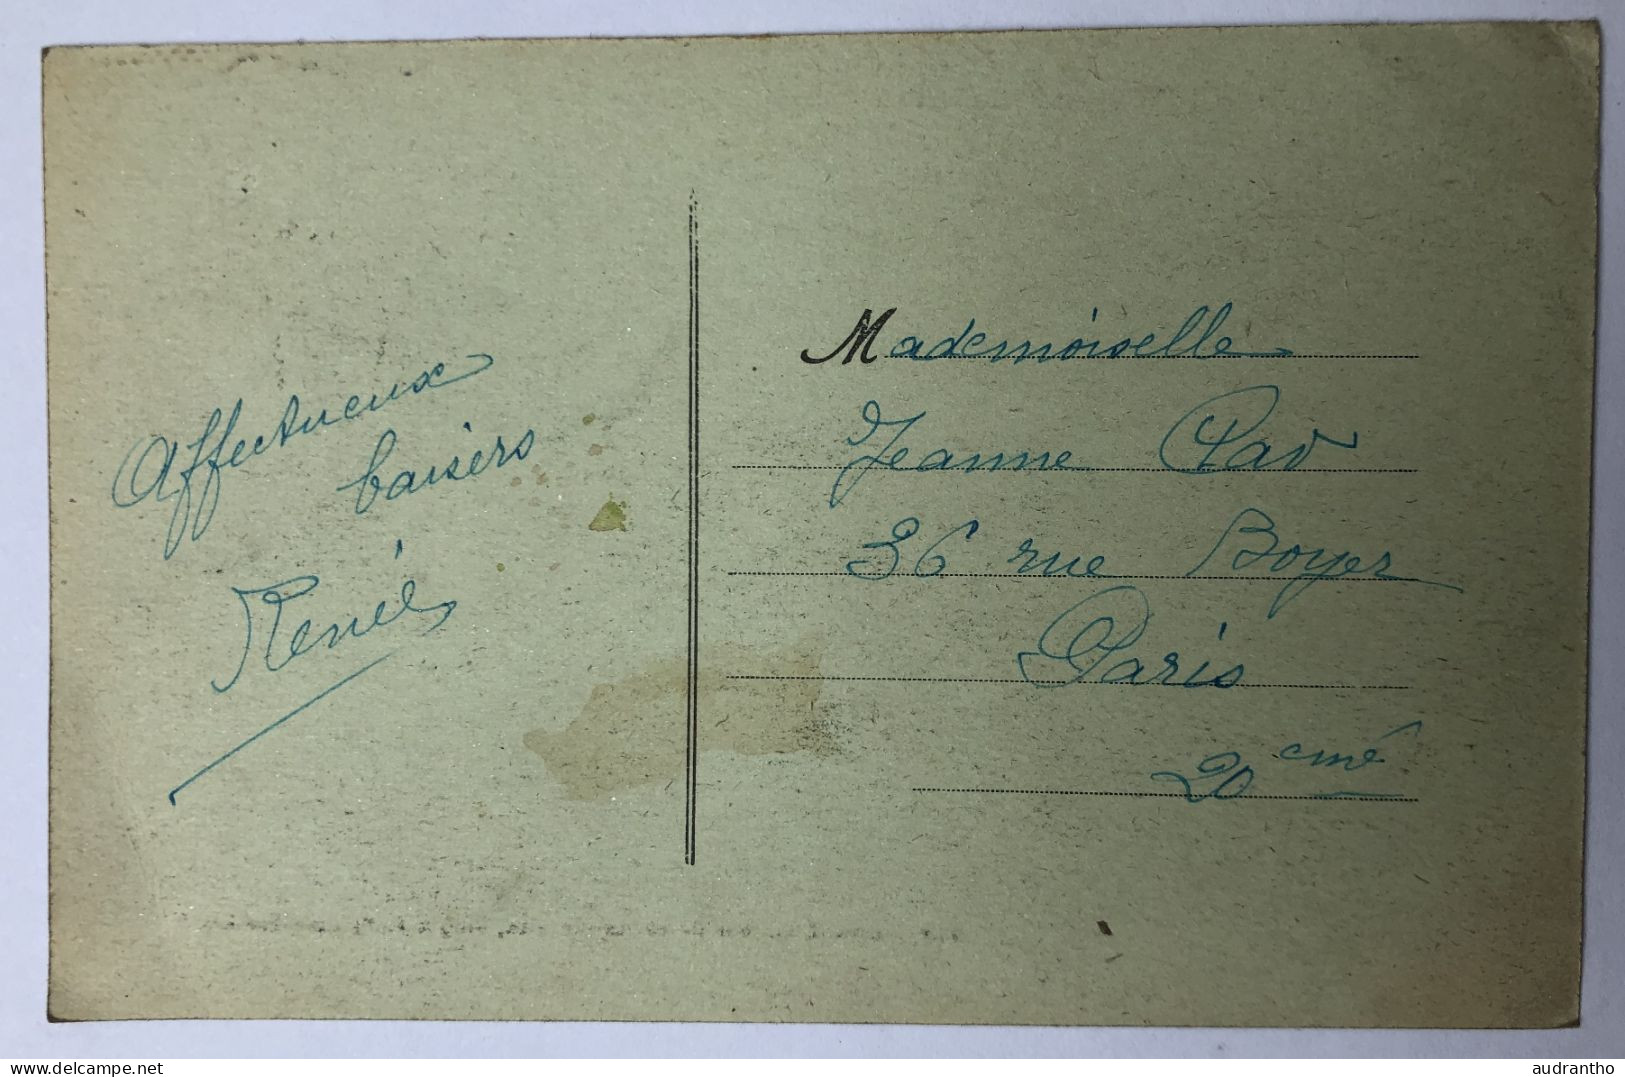 Affectueux
baisers
Renée
Mademoiselle
Jeanne Pav
36 rue Boyer
Paris
20 eme
delcampe.net
audrantho